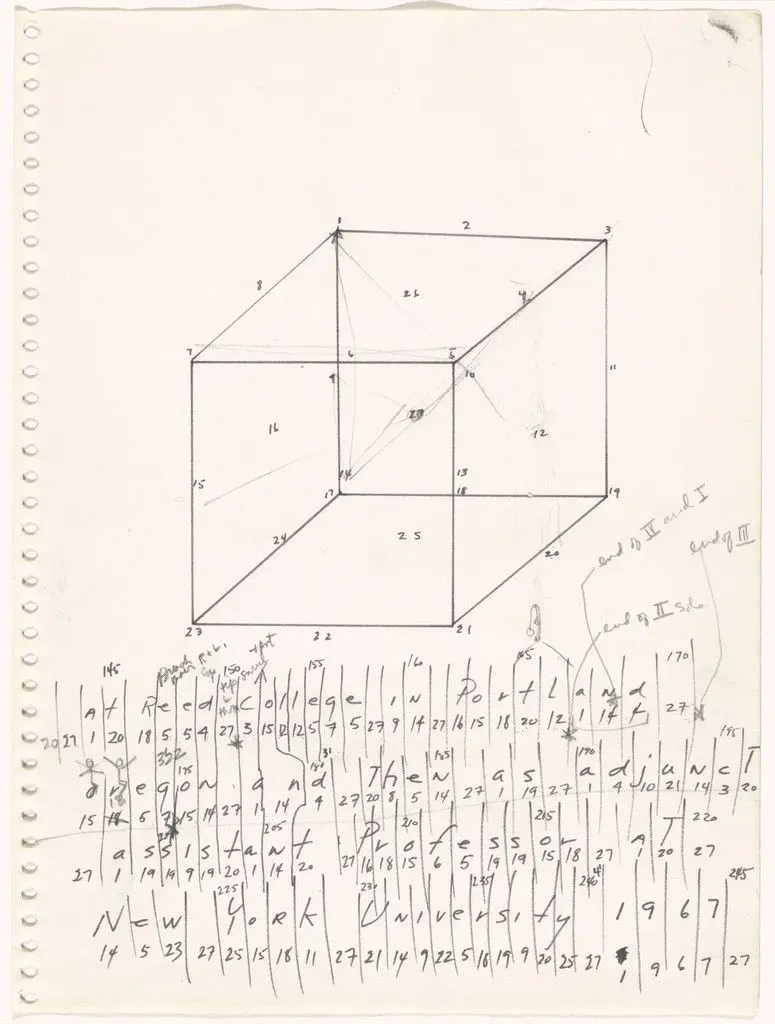 1 2 3
8 26 4
7 6 5
9 10 11
16 12
14 13
15 17 18 19
24 25 20
end of IV and I
end of III
23 22 21
end of II solo
145 150 155 160 165 170
At Reed College in Portland
20 27 1 20 18 5 5 4 27 3 15 12 12 5 7 5 27 9 14 27 16 15 18 20 12 1 14 4 27
175 180 185 190 195
Oregon and Then as adjuncT
15 18 5 7 15 14 27 1 14 4 27 20 8 5 14 27 1 19 27 1 4 10 21 14 3 20
205 210 215 220
assistant Professor AT
27 1 19 19 9 19 20 1 14 20 27 16 18 15 6 5 19 19 15 18 27 1 20 27
225 230 235 240 245
New York University 1967
14 5 23 27 25 15 18 11 27 21 14 9 22 5 18 19 9 20 25 27 1 9 6 7 27